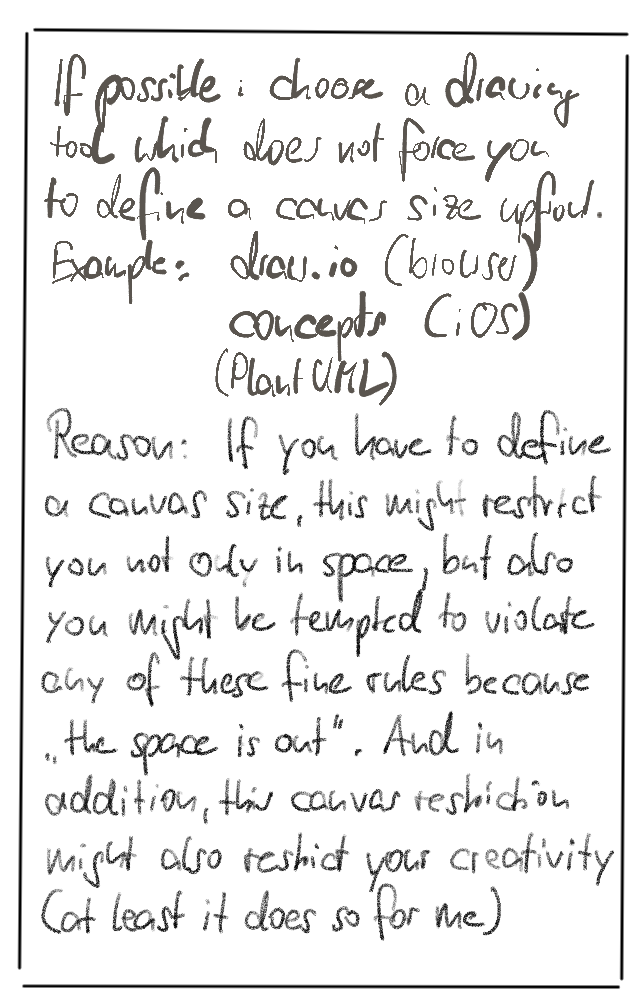 If possible i choose a drawing
tool which does not force you
to define a canvas size upfront.
Example: draw.io (browser)
concepts (iOS)
(PlantUML)
Reason: If you have to define
a canvas size, this might restrict
you not only in space, but also
you might be tempted to violate
any of these fine rules because
„the space is out". And in
addition, this canvas restriction
might also restrict your creativity
(at least it does so for me)